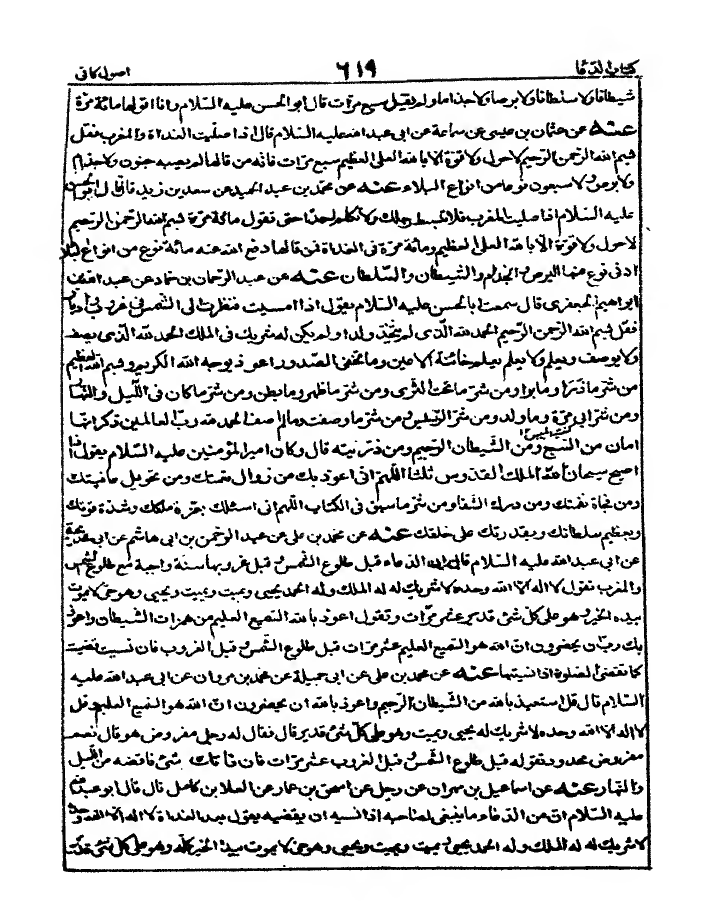 كتاب الدعا ٦١٩ اصول كافى
شيطانا ولا سلطانا ولا برصا ولا جذاما ولم يقل سبع مرات قال ابو الحسن عليه السلام وانا اقولها مائة مرة
عنه عن عثمان بن عيسى عن سماعة عن ابى عبد الله عليه السلام قال اذا صليت الغداة والمغرب فقل
بسم الله الرحمن الرحيم لا حول ولا قوة الا بالله العلى العظيم سبع مرات فانه من قالها لم يصبه جنون ولا جذام
ولا برص ولا سبعون نوعا من انواع البلاء عنه عن محمد بن عبد الحميد عن سعد بن زيد قال قال ابو الحسن
عليه السلام اذا صليت المغرب فلا تبسط رجلك ولا تكلم احدا حتى تقول مائة مرة بسم الله الرحمن الرحيم
لا حول ولا قوة الا بالله العلى العظيم ومائة مرة فى الغداة فمن قالها دفع الله عنه مائة نوع من انواع البلاء
ادنى نوع منها البرص والجذام والشيطان والسلطان عنه عن عبد الرحمان بن حماد عن عبد الله بن
ابراهيم الجعفرى قال سمعت ابا الحسن عليه السلام يقول اذا امسيت فنظرت الى الشمس فى غروب وادبار
فقل بسم الله الرحمن الرحيم الحمد لله الذى لم يتخذ ولدا ولم يكن له شريك فى الملك الحمد لله الذى يصف
ولا يوصف ويعلم ولا يعلم يعلم خائنة الاعين وما تخفى الصدور اعوذ بوجه الله الكريم وبسم الله العظيم
من شر ما ذرأ وما برأ ومن شر ما تحت الثرى ومن شر ما ظهر وما بطن ومن شر ما كان فى الليل والنهار
ومن شر ابى مرة وما ولد ومن شر الرسيس ومن شر ما وصفت وما لم اصف الحمد لله رب العالمين ذكر انها
امان من السبع ومن الشيطان الرجيم ومن ذريته قال وكان امير المؤمنين عليه السلام يقول اذا
اصبح سبحان الله الملك القدوس ثلثا اللهم انى اعوذ بك من زوال نعمتك ومن تحويل عافيتك
ومن فجاة نقمتك ومن درك الشقا ومن شر ما سبق فى الكتاب اللهم انى اسئلك بعزة ملكك وشدة قوتك
وبعظيم سلطانك وبقدرتك على خلقك عنه عن محمد بن على عن عبد الرحمن بن ابى هاشم عن ابى خديجة
عن ابى عبد الله عليه السلام قال ان الدعاء قبل طلوع الشمس وقبل غروبها سنة واجبة مع طلوع الشمس
والمغرب تقول لا اله الا الله وحده لا شريك له له الملك وله الحمد يحيى ويميت ويميت ويحيى وهو حى لا يموت
بيده الخير وهو على كل شئ قدير عشر مرات وتقول اعوذ بالله السميع العليم من همزات الشياطين واعوذ
بك رب ان يحضرون ان الله هو السميع العليم عشر مرات قبل طلوع الشمس وقبل الغروب فان نسيت قضيت
كما تقضى الصلوة اذا نسيتها عنه عن محمد بن على عن ابى جميلة عن محمد بن مروان عن ابى عبد الله عليه
السلام قال قل استعيذ بالله من الشيطان الرجيم واعوذ بالله ان يحضرون ان الله هو السميع العليم وقل
لا اله الا الله وحده لا شريك له يحيى ويميت وهو على كل شئ قدير قال فقال له رجل مفروض هو قال نعم
مفروض محدود تقوله قبل طلوع الشمس وقبل الغروب عشر مرات فان فاتك شئ فاقضه من الليل
والنهار عنه عن اسماعيل بن مهران عن رجل عن اسحق بن عمار عن العلا بن كامل قال قال ابو عبد الله
عليه السلام ان من الدعاء ما ينبغى لصاحبه اذا نسيه ان يقضيه يقول بعد الغداة لا اله الا الله وحده
لا شريك له له الملك وله الحمد يحيى ويميت ويميت ويحيى وهو حى لا يموت بيده الخير كله وهو على كل شئ قدير